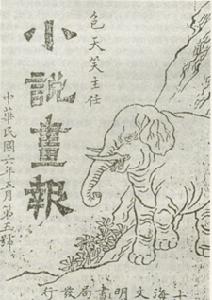 包天笑主任
小說畫報
中華民國六年五月第五號
上海文明書局發行